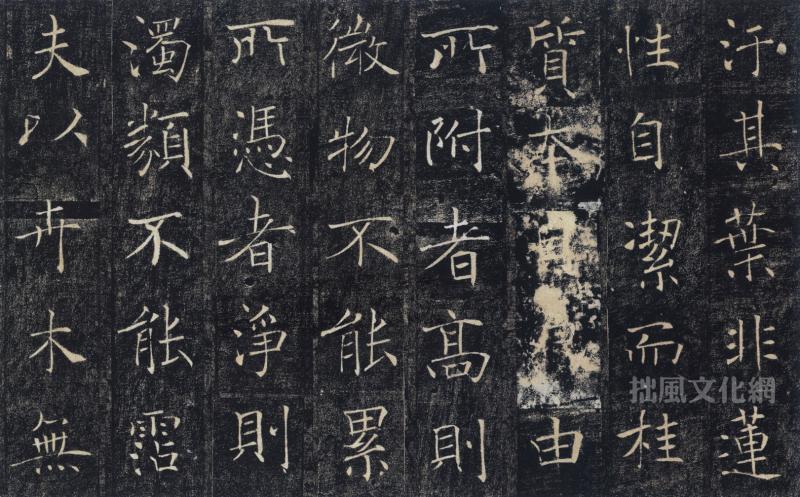 汙其葉非蓮
性自潔而桂
質本貞良由
所附者高則
微物不能累
所憑者淨則
濁類不能霑
夫以卉木無
拙風文化網